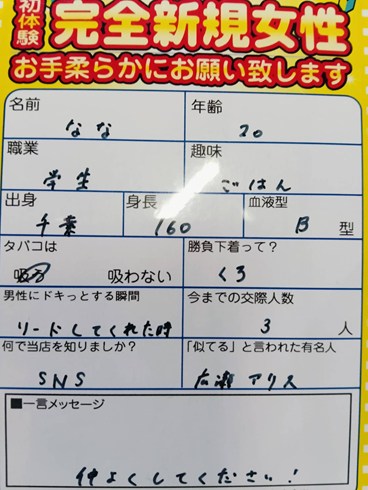 初体験
完全新規女性
お手柔らかにお願い致します
名前 なな
年齢 20
職業 学生
趣味 ごはん
出身 千葉
身長 160
血液型 B 型
タバコは 吸う 吸わない
勝負下着って? くろ
男性にドキっとする瞬間 リードしてくれた時
今までの交際人数 3 人
何で当店を知りましか? SNS
「似てる」と言われた有名人 広瀬アリス
■一言メッセージ
仲よくしてください!